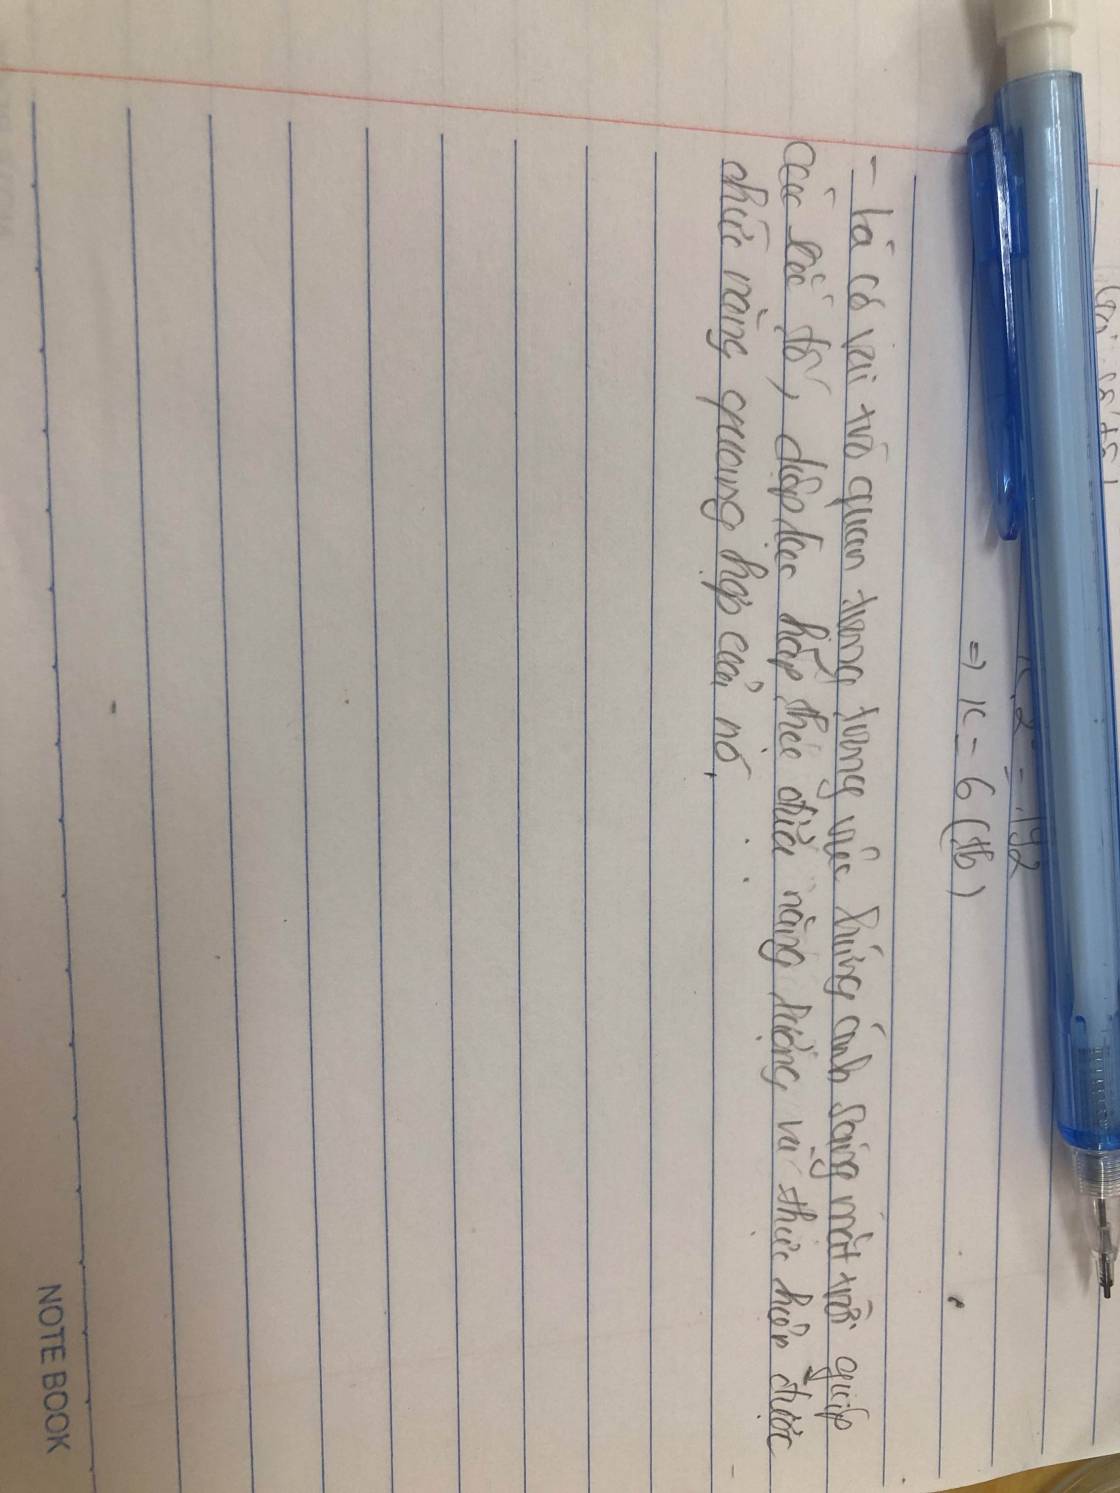 = 192
=> x = 6 (tb)
- Lá có vai trò quan trọng trong việc hứng ánh sáng mặt trời giúp
các sắc tố, diệp lục hấp thu được năng lượng và thực hiện được
chức năng quang hợp của nó.
NOTE BOOK